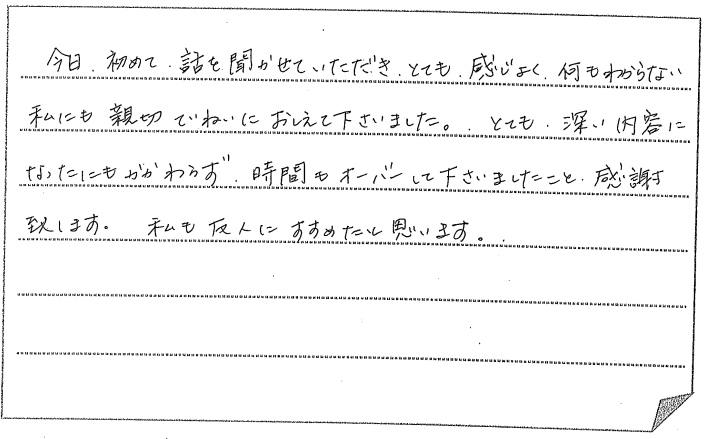 今日、初めて、話を聞かせていただき、とても、感じよく、何もわからない
私にも親切でいねいにおしえて下さいました。、とても、深い内容に
なったにもかかわらず、時間もオーバーして下さいましたこと、感謝
致します。 私も友人にすすめたいと思います。